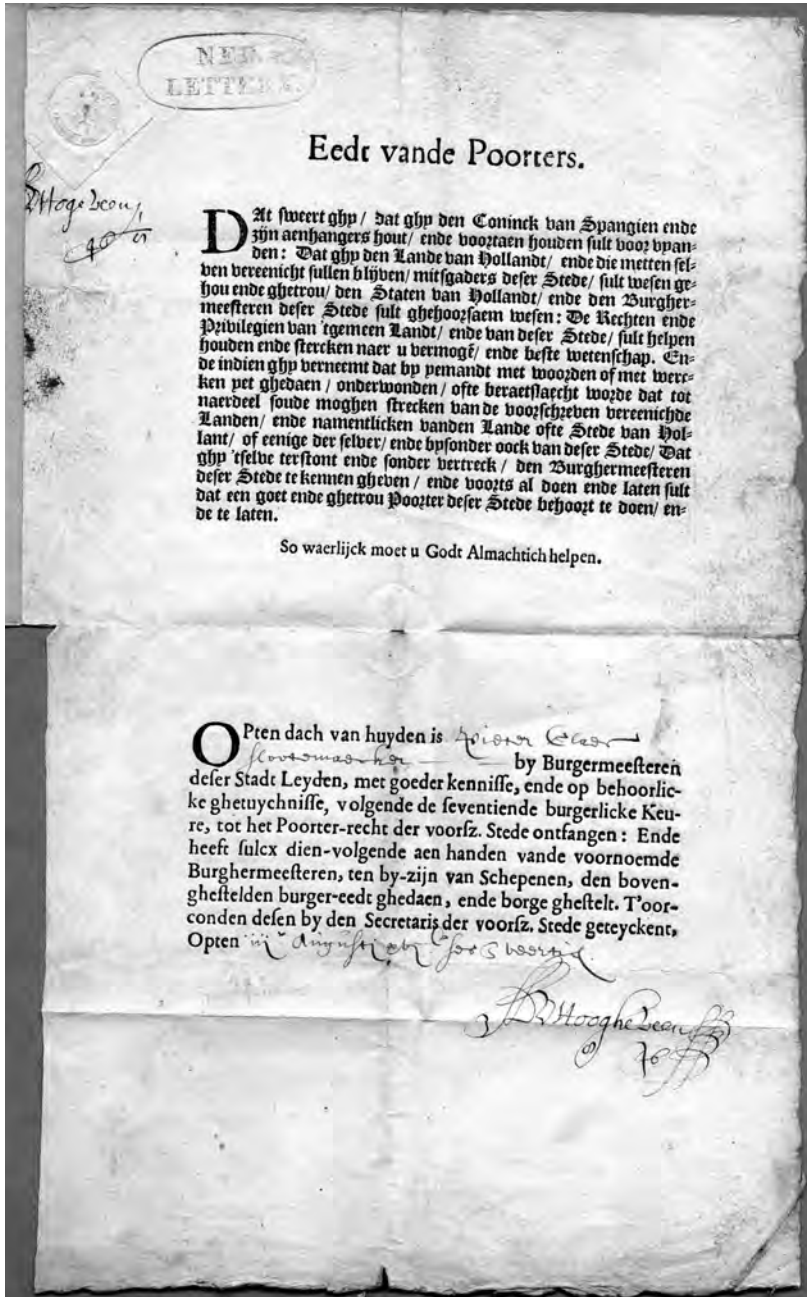 NED.
LETTERK.
Eedt vande Poorters.
Hogeveen
DAt sweert ghy / dat ghy den Coninck van Spangien ende
zijn aenhangers hout / ende voortaen houden sult voor vyan-
den: Dat ghy den Lande van Hollandt / ende die metten sel-
ven vereenicht sullen blijven / mitsgaders deser Stede / sult wesen ge-
hou ende ghetrou / den Staten van Hollandt / ende den Burgher-
meesteren deser Stede sult ghehoorsaem wesen: De Rechten ende
Privilegien van 'tgemeen Landt / ende van deser Stede / sult helpen
houden ende stercken naer u vermogē / ende beste wetenschap. En-
de indien ghy verneemt dat by yemandt met woorden of met werc-
ken yet ghedaen / onderwonden / ofte beraetslaecht worde dat tot
naerdeel soude moghen strecken van de voorschreven vereenichde
Landen / ende namentlicken vanden Lande ofte Stede van Hol-
lant / of eenige der selver / ende bysonder oock van deser Stede / Dat
ghy 'tselve terstont ende sonder vertreck / den Burghermeesteren
deser Stede te kennen gheven / ende voorts al doen ende laten sult
dat een goet ende ghetrou Poorter deser Stede behoort te doen / en-
de te laten.
So waerlijck moet u Godt Almachtich helpen.
OPten dach van huyden is Pieter Claes
slootemaecker by Burgermeesteren
deser Stadt Leyden, met goeder kennisse, ende op behoorlic-
ke ghetuychnisse, volgende de seventiende burgerlicke Keu-
re, tot het Poorter-recht der voorsz. Stede ontfangen: Ende
heeft sulcx dien-volgende aen handen vande voornoemde
Burghermeesteren, ten by-zijn van Schepenen, den boven-
ghestelden burger-eedt ghedaen, ende borge ghestelt. T'oor-
conden desen by den Secretaris der voorsz. Stede geteyckent,
Opten iij Augusti xvjc veertich
Hoogheveen